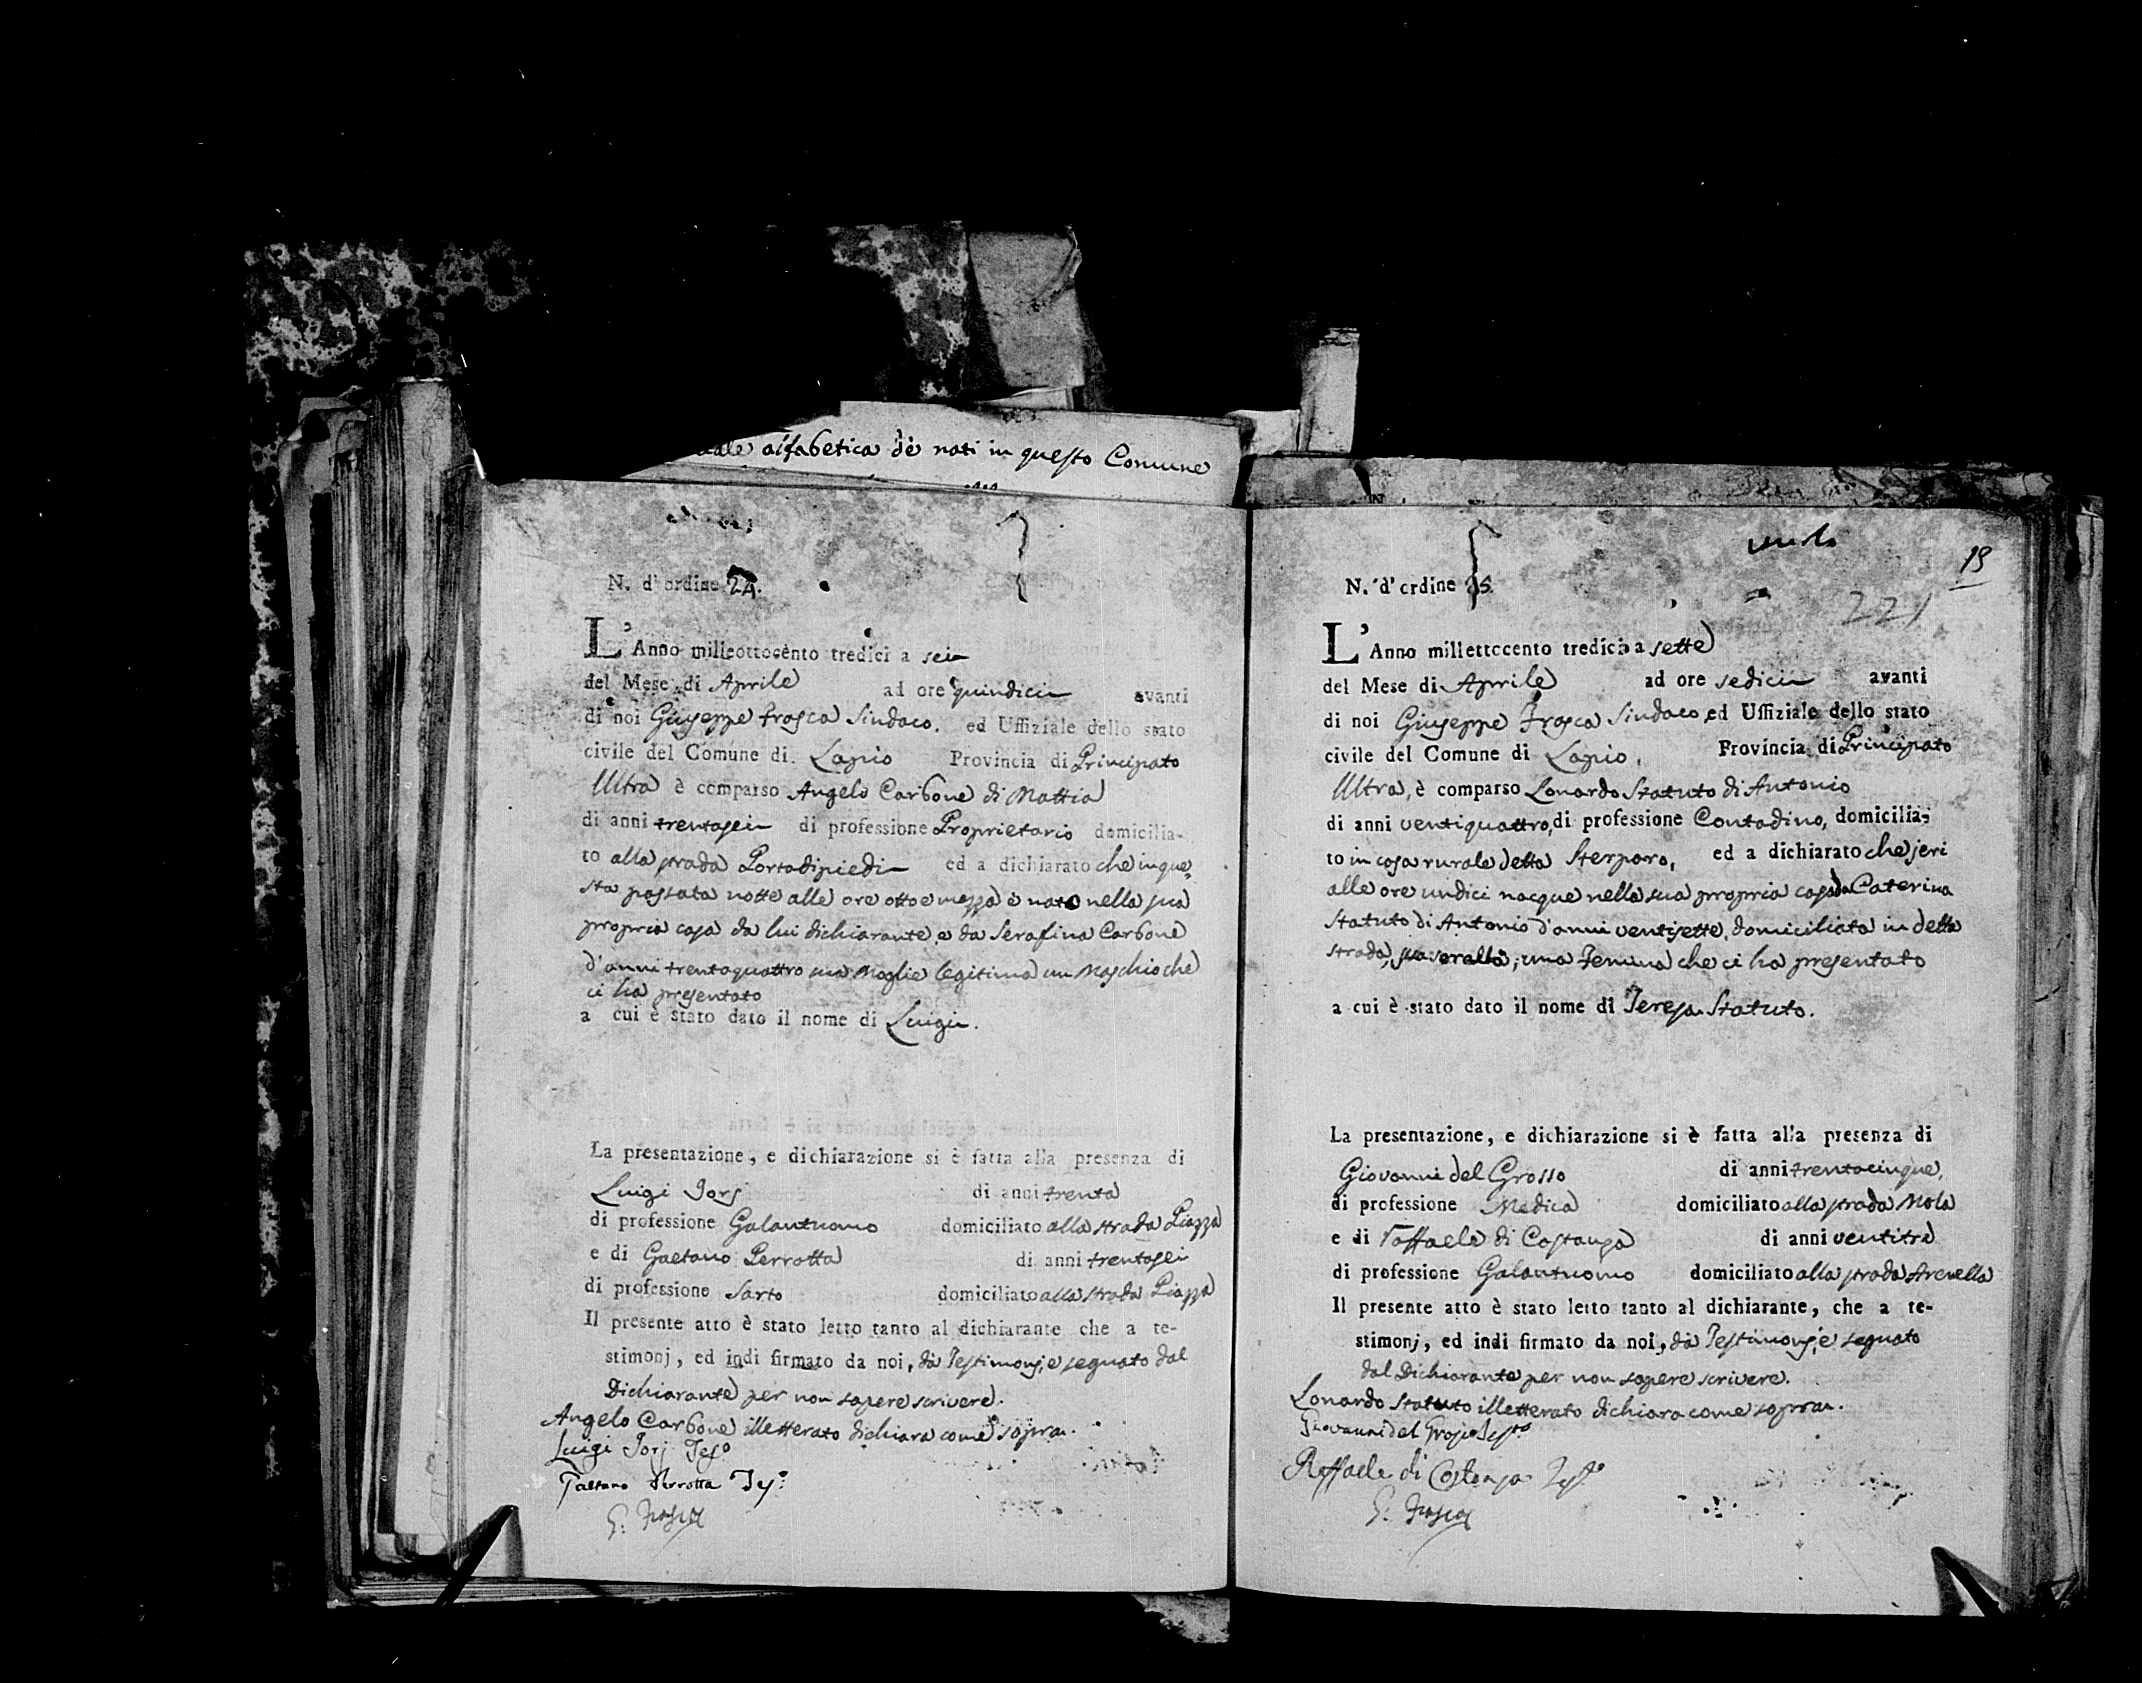 alfabetica de nati in questo Comune
N. d'ordine 24.
L'Anno milleottocento tredici a sei
del Mese di Aprile ad ore quindici avanti
di noi Giuseppe Frasca Sindaco. ed Uffiziale dello stato
civile del Comune di Lapio Provincia di Principato
Ultra è comparso Angelo Carbone di Mattia
di anni trentasei di professione Proprietario domicilia-
to alla strada Portadipiedi ed a dichiarato che in que-
sta passata notte alle ore otto e mezza è nato nella sua
propria casa da lui dichiarante, e da Serafina Carbone
d'anni trentaquattro sua Moglie legitima un Maschio che
ci ha presentato
a cui è stato dato il nome di Luigi.
La presentazione, e dichiarazione si è fatta alla presenza di
Luigi Jorj di anni trenta
di professione Galantuomo domiciliato alla strada Piazza
e di Gaetano Perrotta di anni trentasei
di professione Sarto domiciliato alla strada Piazza
Il presente atto è stato letto tanto al dichiarante che a te-
stimonj, ed indi firmato da noi, da Testimonj, e segnato dal
Dichiarante per non sapere scrivere.
Angelo Carbone illetterato dichiara come sopra.
Luigi Jorj Tes.o
Gaetano Perrotta Tes.o
G. Frasca
19
221
N. d'ordine 25
L'Anno milleottocento tredici a sette
del Mese di Aprile ad ore sedici avanti
di noi Giuseppe Frasca Sindaco ed Uffiziale dello stato
civile del Comune di Lapio, Provincia di Principato
Ultra, è comparso Lonardo Statuto di Antonio
di anni ventiquattro, di professione Contadino, domicilia-
to in casa rurale detta Sterparo, ed a dichiarato che jeri
alle ore undici nacque nella sua propria casa da Caterina
Statuto di Antonio d'anni ventisette, domiciliata in detta
strada, sua sorella; una Femina che ci ha presentato
a cui è stato dato il nome di Teresa Statuto.
La presentazione, e dichiarazione si è fatta alla presenza di
Giovanni del Grosso di anni trentacinque,
di professione Medica domiciliato alla strada Mola
e di Raffaele di Costanza di anni ventitre
di professione Galantuomo domiciliato alla strada Arenella
Il presente atto è stato letto tanto al dichiarante, che a te-
stimonj, ed indi firmato da noi, da Testimonj, e segnato
dal Dichiarante per non sapere scrivere.
Lonardo Statuto illetterato dichiara come sopra.
Giovanni del Grosso Test.o
Raffaele di Costanza Test.o
G. Frasca